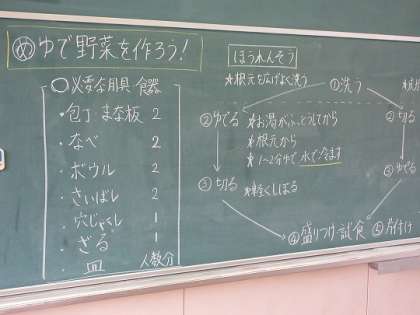 め ゆで野菜を作ろう!
○必要な用具 食器
・包丁 まな板 2
・なべ 2
・ボウル 2
・さいばし 2
・穴じゃくし 1
・ざる 1
・皿 人数分
ほうれんそう
*根元を広げよく洗う
①洗う
②ゆでる *お湯がふっとうしてから
*根元から
*1~2分ゆで 水で冷ます
③切る *軽くしぼる
②切る
③ゆでる
④盛りつけ・試食 ⑤片付け